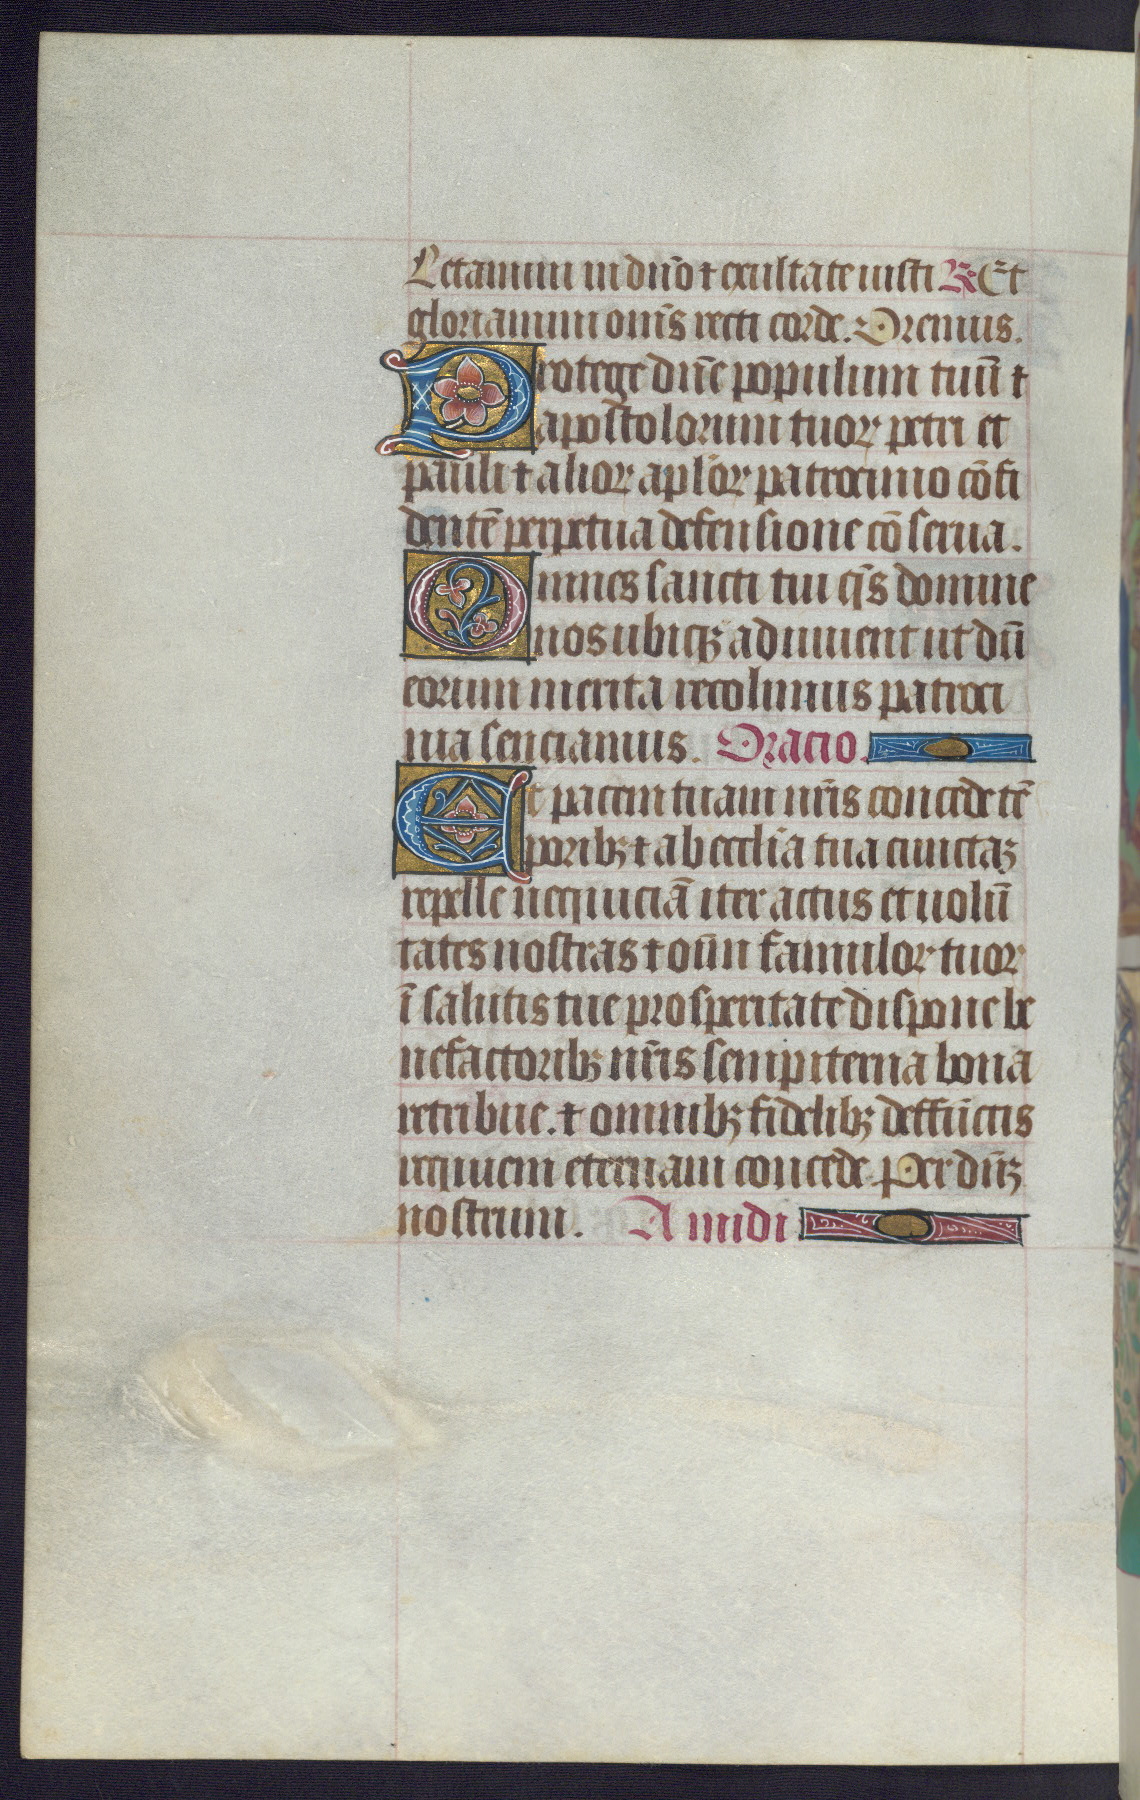 Letamini in dnõ ⁊ exultate iusti R. Et
gloriamini om̃s recti corde. Oremus.
Protege dñe populum tuũ ⁊
apostolorum tuoꝝ petri et
pauli ⁊ alioꝝ aplõꝝ patrocinio cõfi
dentẽ perpetua defensione cõserua.
Omnes sancti tui q̃s domine
nos ubiqꝫ adiuuent ut dũ
eorum merita recolimus patroci
nia senciamus. Oracio.
Et pacem tuam nr̃is concede tẽ
poribꝫ ⁊ ab ecclĩa tua cunctaꝫ
repelle nequiciã iter actus et uolũ
tates nostras ⁊ oĩm famuloꝝ tuoꝝ
ĩ salutis tue prosperitate dispone be
nefactoribꝫ nr̃is sempiterna bona
retribue. ⁊ omnibꝫ fidelibꝫ deffũctis
requiem eternam concede. Per dñꝫ
nostrum. A midi